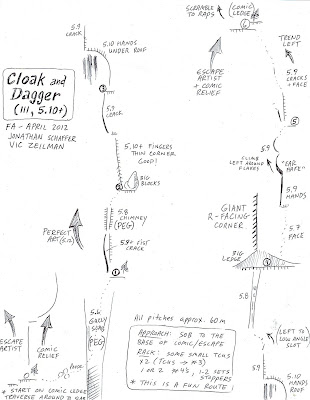 SCRAMBLE
TO RAPS
(COMIC
LEDGE)
⑥
5.9
CRACK
5.10 HANDS
UNDER ROOF
Cloak and
Dagger
(III, 5.10+)
FA - APRIL 2012
JONATHAN SCHAFFER
VIC ZEILMAN
③
5.9
CRACK
5.10+ FINGERS
THIN CORNER
GOOD!
BIG
BLOCKS
②
5.8
CHIMNEY
(PEG)
PERFECT
ART (5.12)
5.9+ FIST
CRACK
①
5.6
GULLY
SCRAM
(PEG)
ESCAPE
ARTIST
COMIC
RELIEF
* START ON COMIC LEDGE
TRAVERSE AROUND
ESCAPE
ARTIST
+ COMIC
RELIEF
TREND
LEFT
5.9
CRACKS
+ FACE
⑤
5.9
CLIMB
LEFT AROUND
FLAKES
"EAR
FLAKE"
5.9
HANDS
GIANT
R-FACING
CORNER
5.7
FACE
BIG
LEDGE
5.8
(LEFT TO
LOW ANGLE
SLOT
③
5.10
HANDS
ROOF
All pitches approx. 60m
APPROACH: SOB TO THE
BASE OF COMIC/ESCAPE
RACK: SOME SMALL TCUS
X2 (TCUS → #3)
1 OR 2 #4'S, 1-2 SETS
STOPPERS
* THIS IS A FUN ROUTE